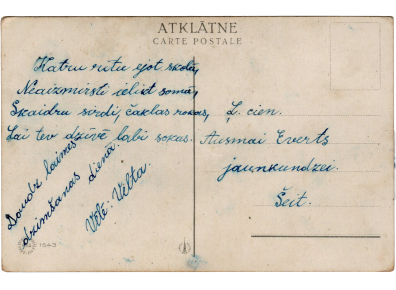 ATKLĀTNE
CARTE POSTALE
Katru rītu ejot skolā,
Neaizmirsti ielikt somā,
Skaidru sirdi, čaklas rokas,
Lai tev dzīvē labi sokas.
Daudz laimes
dzimšanas dienā.
Vēl: Velta.
L. cien.
Ausmai Everts
jaunkundzei.
Šeit.
1543